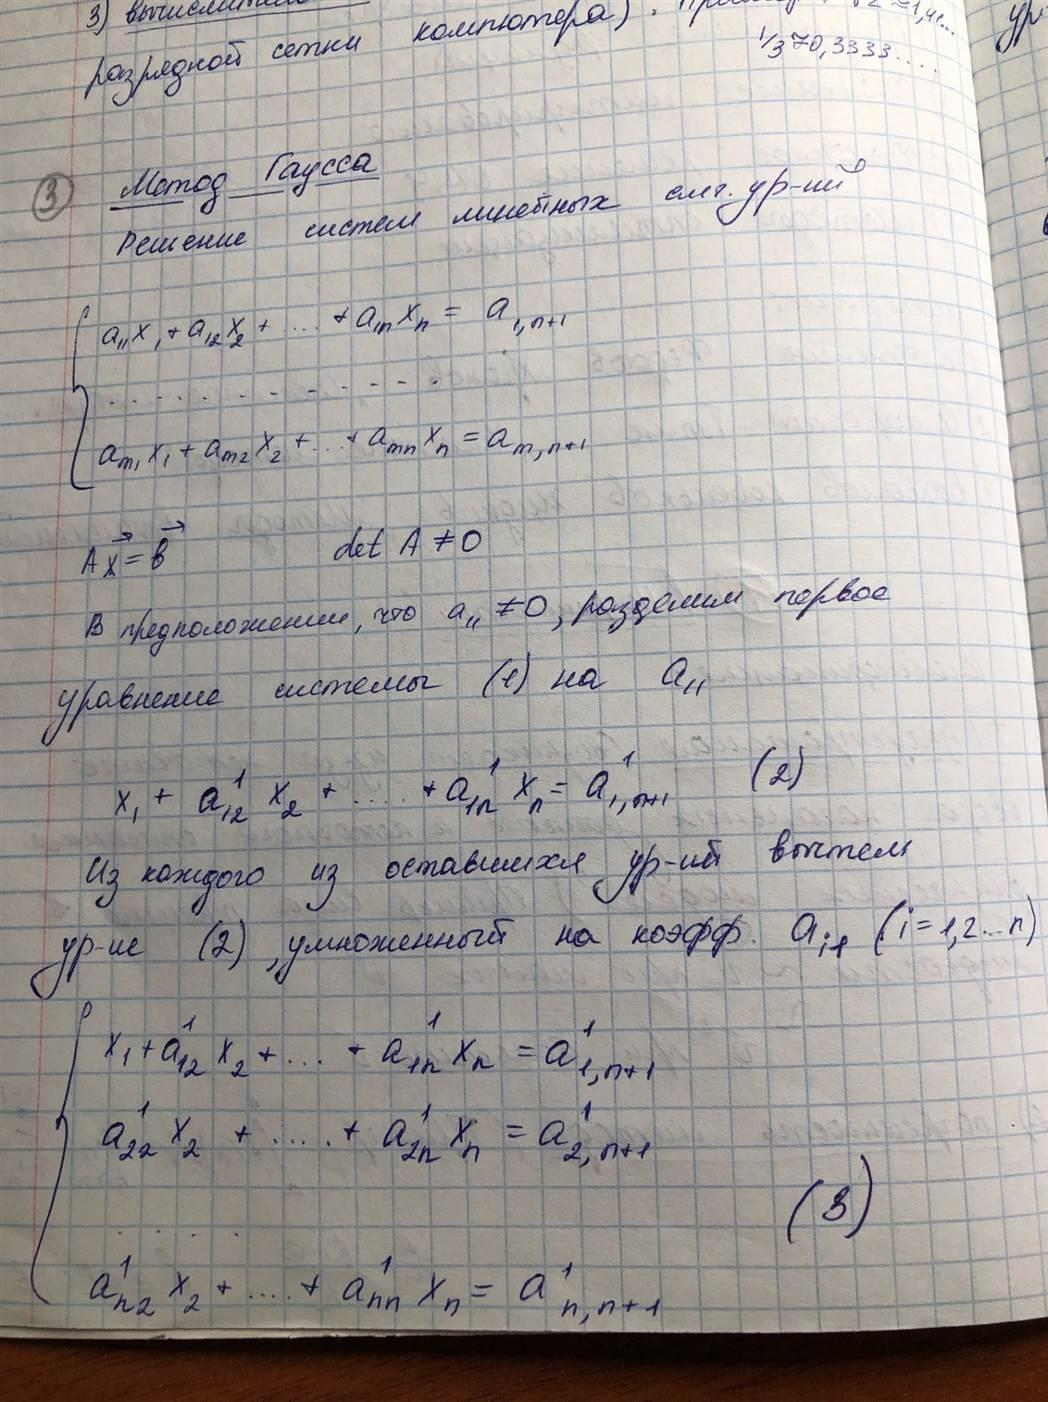 3) вычислительн
разрядной сетки компютера). Пример: √2 ≈ 1,41...
1/3 ≈ 0,3333....
ур-
③ Метод Гаусса
Решение систем линейных алг. ур-ий
a₁₁x₁ + a₁₂x₂ + ... + a₁ₙxₙ = a₁,ₙ₊₁
. . . . . . . . . . . .
aₘ₁x₁ + aₘ₂x₂ + ... + aₘₙxₙ = aₘ,ₙ₊₁
Ax⃗ = b⃗ det A ≠ 0
В предположении, что a₁₁ ≠ 0, разделим первое
уравнение системы (1) на a₁₁
x₁ + a¹₁₂ x₂ + .... + a¹₁ₙ xₙ = a¹₁,ₙ₊₁ (2)
Из каждого из оставшихся ур-ий вычтем
ур-ие (2), умноженный на коэфф. aᵢ₁ (i = 1,2...n)
x₁ + a¹₁₂ x₂ + .... + a¹₁ₙ xₙ = a¹₁,ₙ₊₁
a¹₂₂ x₂ + ..... + a¹₂ₙ xₙ = a¹₂,ₙ₊₁
. . . . . (3)
a¹ₙ₂ x₂ + .... + a¹ₙₙ xₙ = a¹ₙ,ₙ₊₁